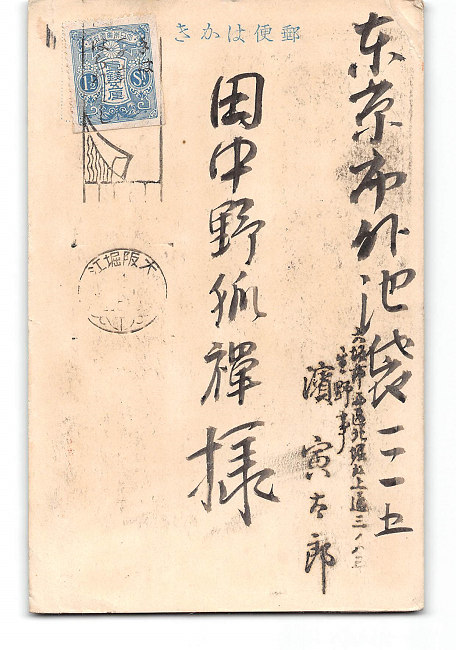 郵便はかき
東京市外池袋一二一五
田中野狐禅様
大坂市西區北堀江上通三ノ八
生野事
濱寅太郎
大阪堀江
1½ Sn